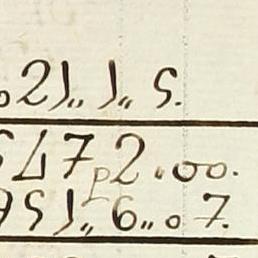 021„ 1„ 5.
547p 2.00.
951„ 6„ 07.